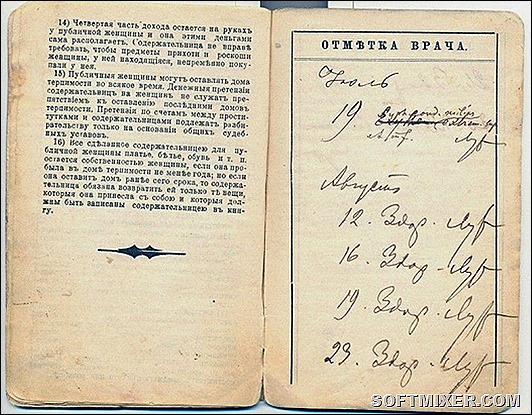 14) Четвертая часть дохода остается на руках
у публичной женщины и она этими деньгами
сама располагаетъ. Содержательница не вправѣ
требовать, чтобы предметы прихоти и роскоши
женщины, у ней находящіяся, непремѣнно поку-
пали у нея.
15) Публичныя женщины могутъ оставлять дома
терпимости во всякое время. Денежныя претензіи
содержательницъ на женщинъ не служатъ пре-
пятствіемъ къ оставленію послѣдними домовъ
терпимости. Претензіи по счетамъ между прости-
тутками и содержательницами подлежатъ разби-
рательству только на основаніи общихъ судеб-
ныхъ уставовъ.
16) Все сдѣланное содержательницею для пу-
бличной женщины платье, бѣлье, обувь и т. п.
остается собственностью женщины, если она про-
была въ домѣ терпимости не менѣе года; но если
она оставитъ домъ ранѣе сего срока, то содержа-
тельница обязана возвратить ей только тѣ вещи,
которыя она принесла съ собою и которыя дол-
жны быть записаны содержательницею въ кни-
гу.
ОТМѢТКА ВРАЧА.
Іюль
19
Августъ
12. Здор.
16. Здор.
19. Здор.
23. Здор.
SOFTMIXER.COM